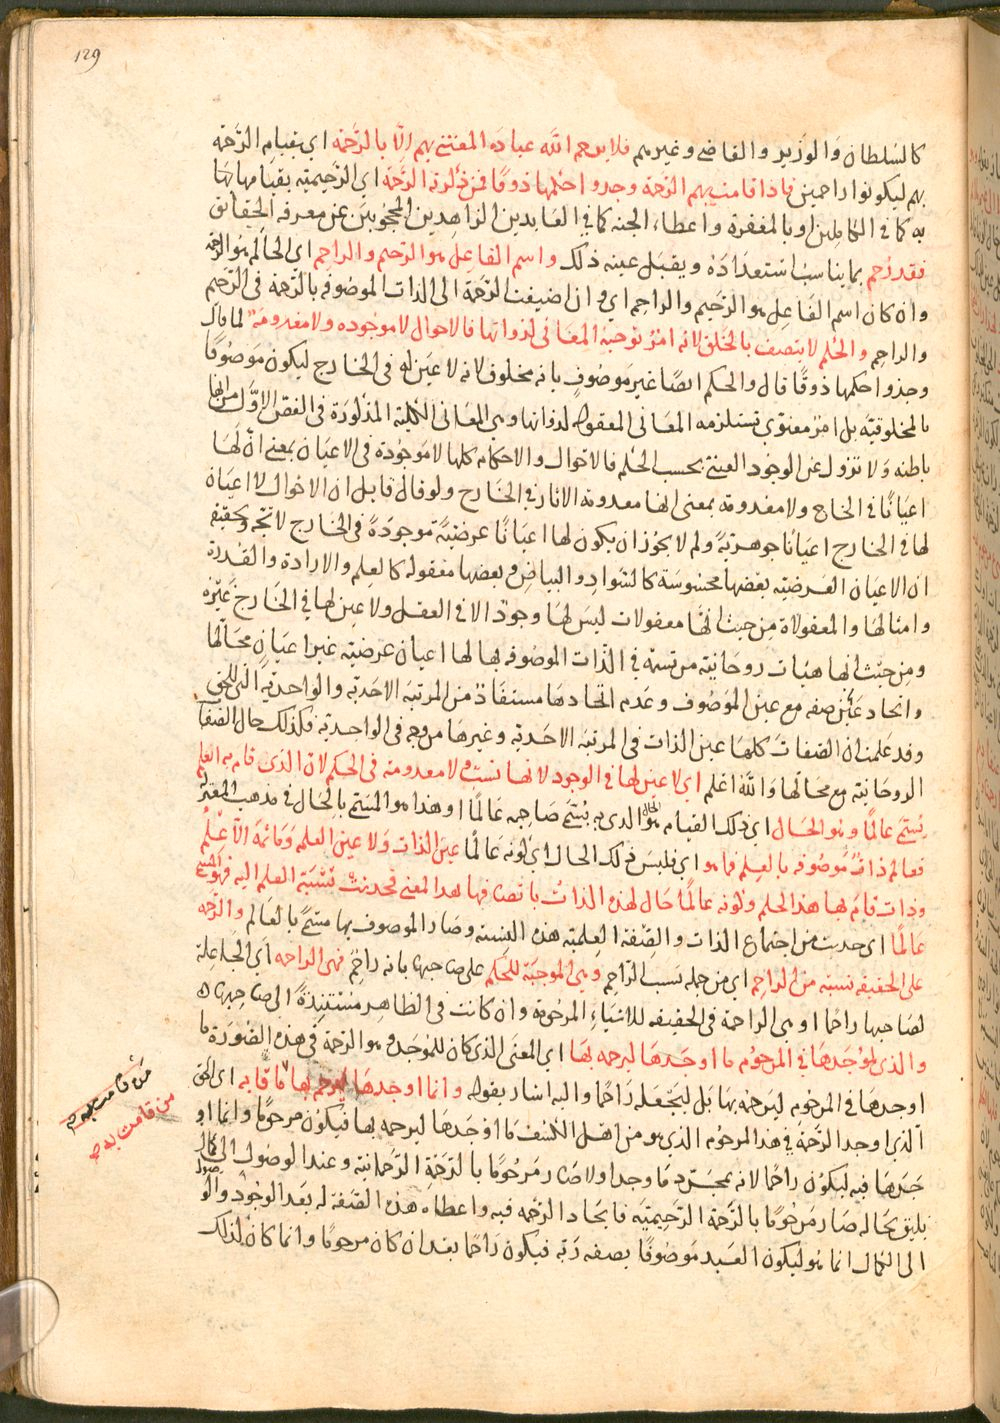 129
كالسلطان والوزير والقاضى وغيرهم فلا يرحم الله عباده المعتنى بهم إلا بالرحمة اى بقيام الرحمة
بهم ليكونوا راحمين فاذا قامت بهم الرحمة وجدوا حكمها ذوقا فمن ذكرته الرحمة اى الرحيمية بقيامها بها
به كما فى الكاملين او بالمغفرة واعطاء الجنة كما فى العابدين الزاهدين المحجوبين عن معرفة الحقائق
فقد رحم بما يناسب استعداده ويقبل عينه ذلك واسم الفاعل هو الرحيم والراحم اى الحاكم هو الرحمة
وان كان اسم الفاعل هو الرحيم والراحم اى وان اضيفت الرحمة الى الذات الموصوفة بالرحمة فى الرحيم
والراحم والحكم لا يتصف بالخلق لانه امر توجبه المعانى لذواتها فالاحوال لا موجودة ولا معدومة لما قال
وجدوا حكمها ذوقا قال والحكم ايضا غير موصوف بانه مخلوق لانه لا عين له فى الخارج ليكون موصوفا
بالمخلوقية بل امر معنوى تستلزمه المعانى المعقولة لذواتها وهى المعانى الكلية المذكورة فى الفص الاول من انها
باطنة ولا تزول عن الوجود العينى بحسب الحكم فالاحوال والاحكام كلها لا موجودة فى الاعيان بمعنى ان لها
اعيانا فى الخارج ولا معدومة بمعنى انها معدومة الاثار فى الخارج ولو قال قايل ان الاحوال لا اعيان
لها فى الخارج اعيانا جوهرية ولم لا يجوز ان يكون لها اعيانا عرضية موجودة فى الخارج لا تتجه وتحقيقه
ان الاعيان العرضية بعضها محسوسة كالسواد والبياض وبعضها معقولة كالعلم والارادة والقدرة
وامثالها والمعقولاة من حيث انها معقولات ليس لها وجود الا فى العقل ولا عين لها فى الخارج غيره
ومن حيث انها هيئات روحانية مرتسمة فى الذات الموصوفة بها لها اعيان عرضية غير اعيان محالها
واتحاد عين صفه مع عين الموصوف وعدم اتحادها مستفاد من المرتبة الاحدية والواحدية التى للحق
وقد علمت ان الصفات كلها عين الذات فى المرتبة الاحدية وغيرها من وجه فى الواحدية فكذلك حال الصفات
الروحانية مع محالها والله اعلم اى لا عين لها فى الوجود لانها نسب ولا معدومة فى الحكم لان الذى قام به العلم
يسمى عالما وهو الحال اى ذلك القيام هو الحال الذى به يسمى صاحبه عالما او هذا هو المسمى بالحال فى مذهب المعتزلة
فعالم ذات موصوفة بالعلم فما هو اى فليس ذلك الحال اى كونه عالما عين الذات ولا عين العلم وما ثمة الا علم
وذات قام بها هذا العلم وكونه عالما حال لهذه الذات باتصافها هذا المعنى فحدثت نسبة العلم اليه فهو المسمى
عالما اى حدثت من اجتماع الذات والصفة العلمية هذه النسبة وصار الموصوف بها مسمى بالعالم والرحمة
على الحقيقة نسبة من الراحم اى من جملة نسب الراحم وهى الموجبة للحكم على صاحبها بانه راحم فهى الراحمة اى الجاعلة
لصاحبها راحما او هى الراحمة فى الحقيقة للاشياء المرحومة وان كانت فى الظاهر مستندة الى صاحبها
والذى اوجدها فى المرحوم ما اوجدها ليرحمه بها اى المعنى الذى كان للموجد وهو الرحمة فى هذه الصورة ما
اوجدها فى المرحوم ليرحمه بها بل ليجعله راحما واليه اشار بقوله وانما اوجدها ليرحم بها ما قام به اى الحق
الذى اوجد الرحمة فى هذا المرحوم الذى هو من اهل الكشف ما اوجدها ليرحمه بها فيكون مرحوما وانما او
جدها فيه ليكون راحما لانه بمجرد ما وجد اولا صار مرحوما بالرحمة الرحمانية وعند الوصول الى الكمال
يليق بحاله صار مرحوما بالرحمة الرحيمية فايجاد الرحمة فيه واعطاه هذه الصفة له بعد الوجود والوصول
الى الكمال انما هو ليكون العبد موصوفا بصفة ربه فيكون راحما بعد ان كان مرحوما وانما كان لذلك
من قامت به
من قامت به صح